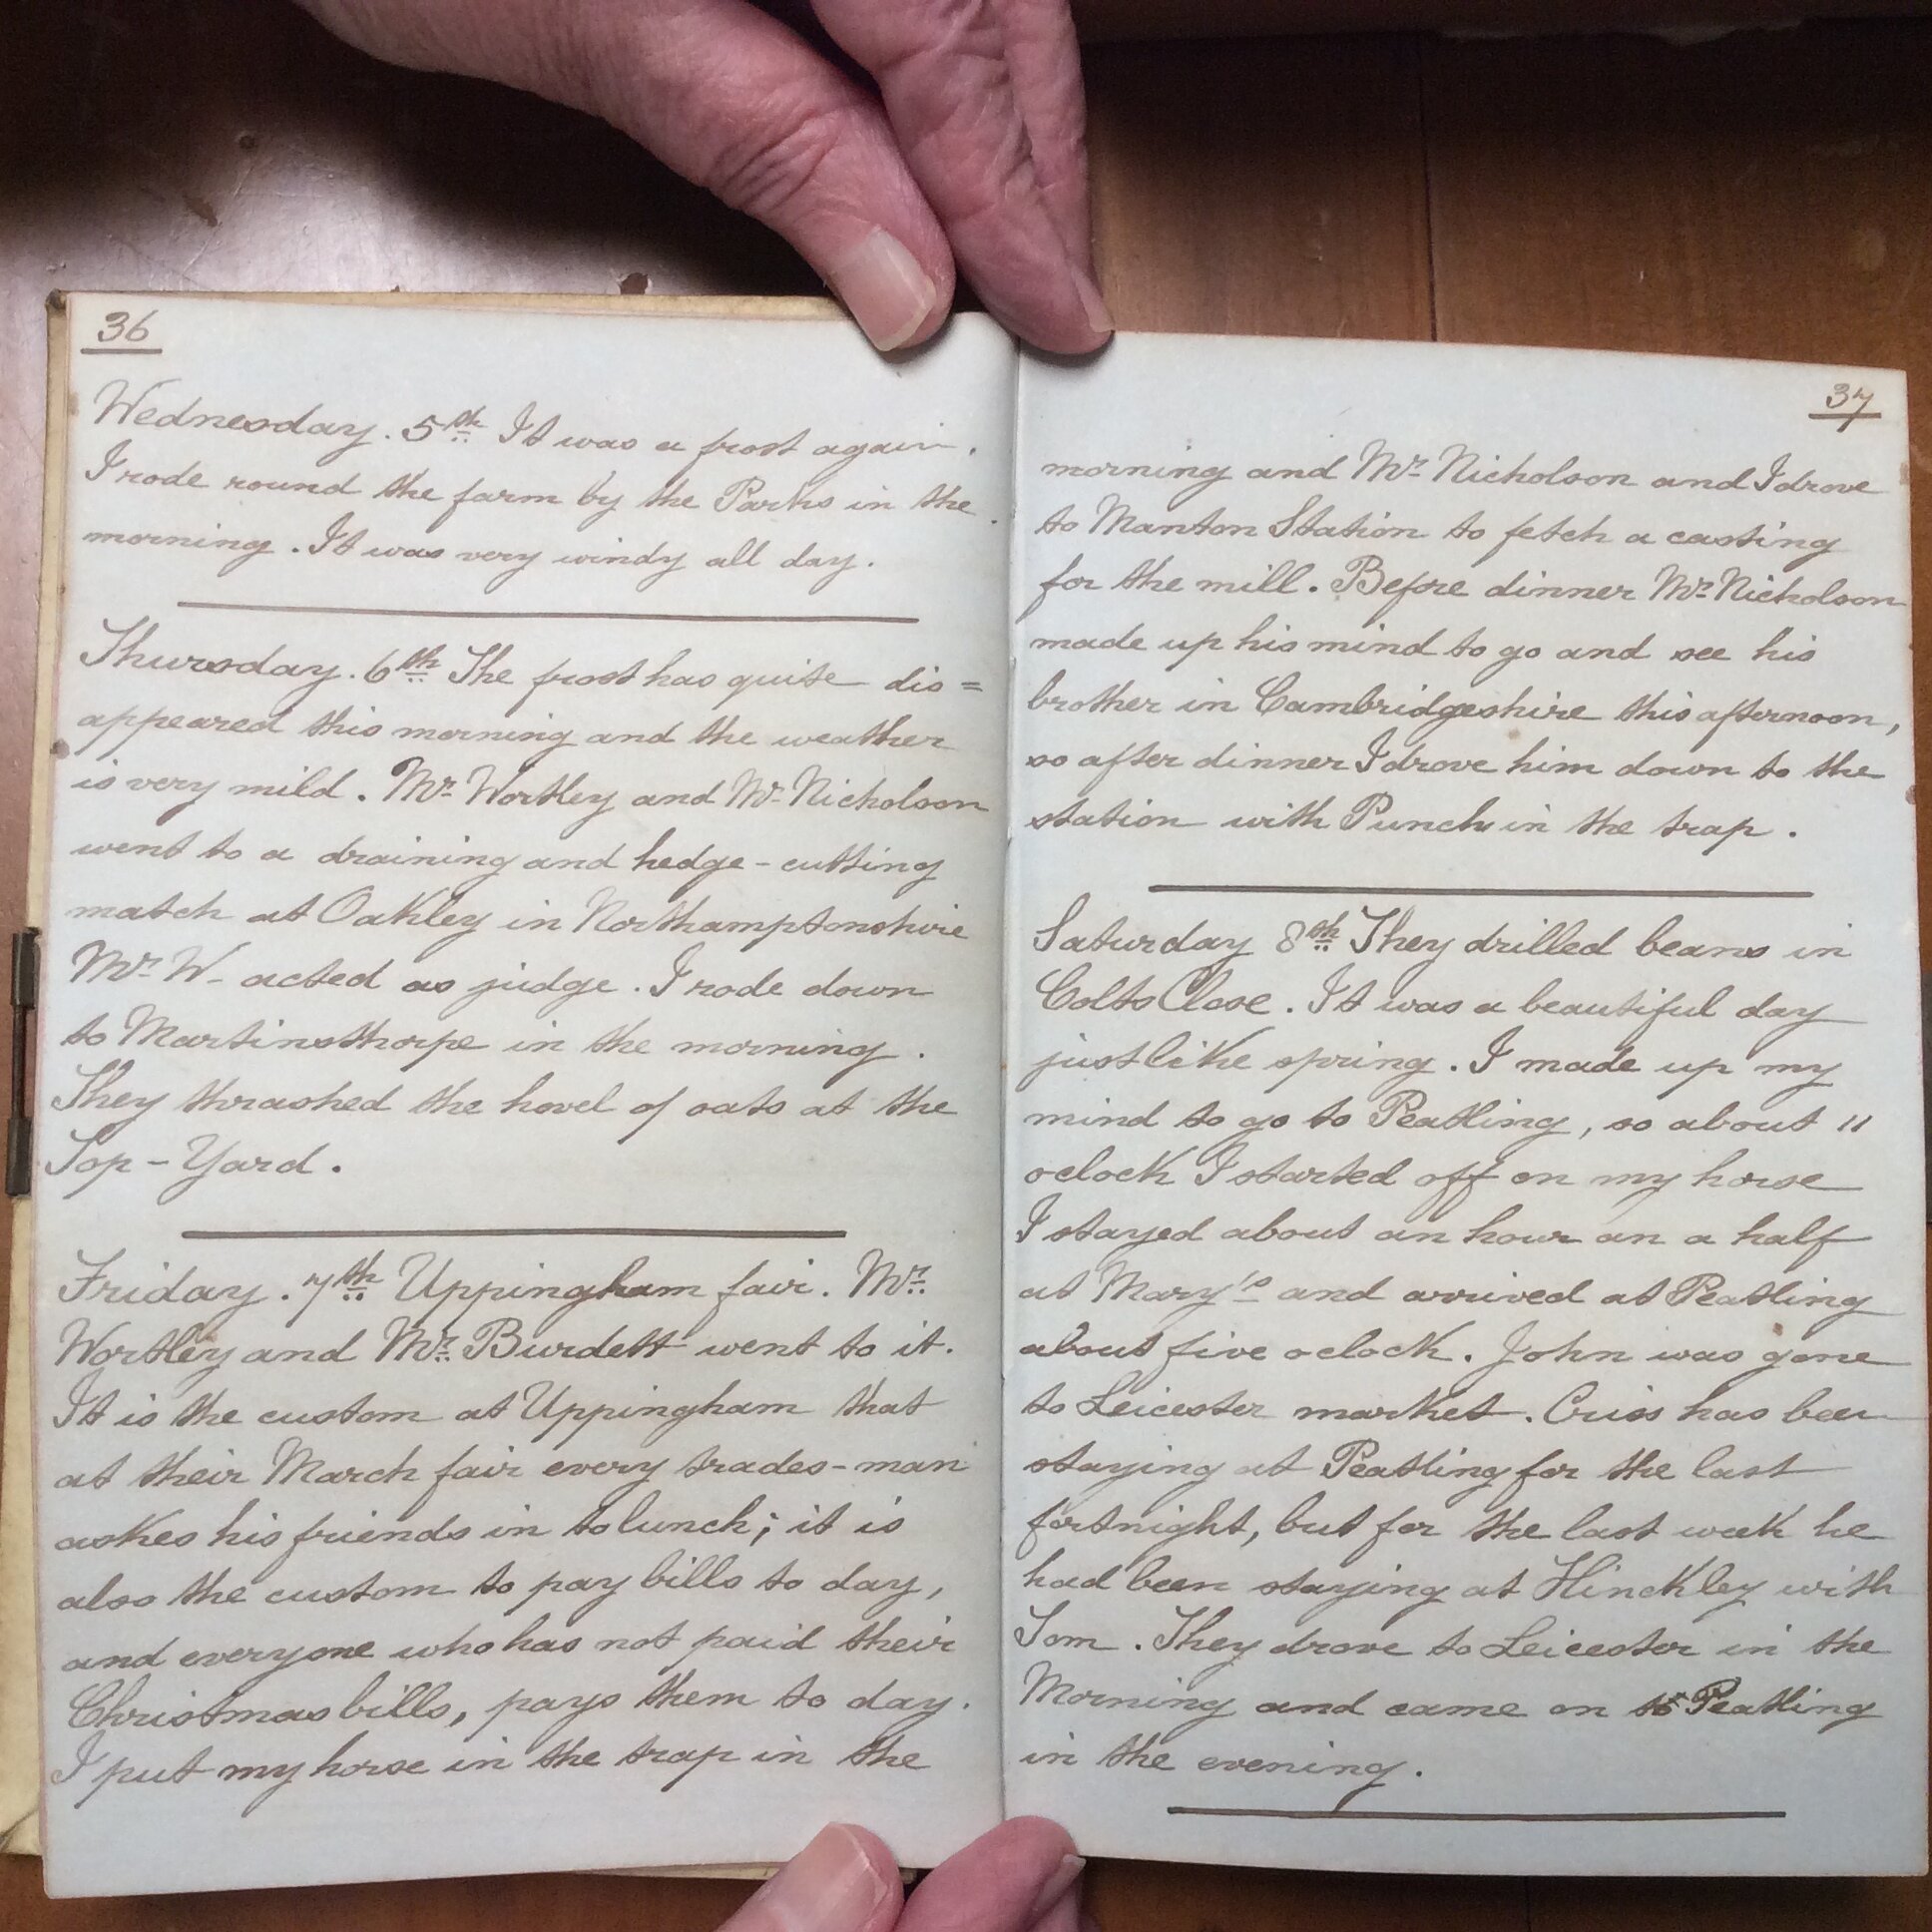 36
Wednesday. 5th It was a frost again.
I rode round the farm by the Parks in the
morning. It was very windy all day.
Thursday. 6th The frost has quite dis=
appeared this morning and the weather
is very mild. Mr Wortley and Mr Nicholson
went to a draining and hedge-cutting
match at Oakley in Northamptonshire
Mr W- acted as judge. I rode down
to Martinsthorpe in the morning.
They thrashed the hovel of oats at the
Top-Yard.
Friday. 7th Uppingham fair. Mr
Wortley and Mr Burdett went to it.
It is the custom at Uppingham that
at their March fair every trades-man
askes his friends in to lunch; it is
also the custom to pay bills to day,
and everyone who has not paid their
Christmas bills, pays them to day.
I put my horse in the trap in the
37
morning and Mr Nicholson and I drove
to Manton Station to fetch a casting
for the mill. Before dinner Mr Nicholson
made up his mind to go and see his
brother in Cambridgeshire this afternoon,
so after dinner I drove him down to the
station with Punch in the trap.
Saturday 8th They drilled beans in
Colts Close. It was a beautiful day
just like spring. I made up my
mind to go to Peatling, so about 11
oclock I started off on my horse
I stayed about an hour an a half
at Mary's and arrived at Peatling
about five oclock. John was gone
to Leicester market. Criss has been
staying at Peatling for the last
fortnight, but for the last week he
had been staying at Hinckley with
Tom. They drove to Leicester in the
Morning and came on to Peatling
in the evening.